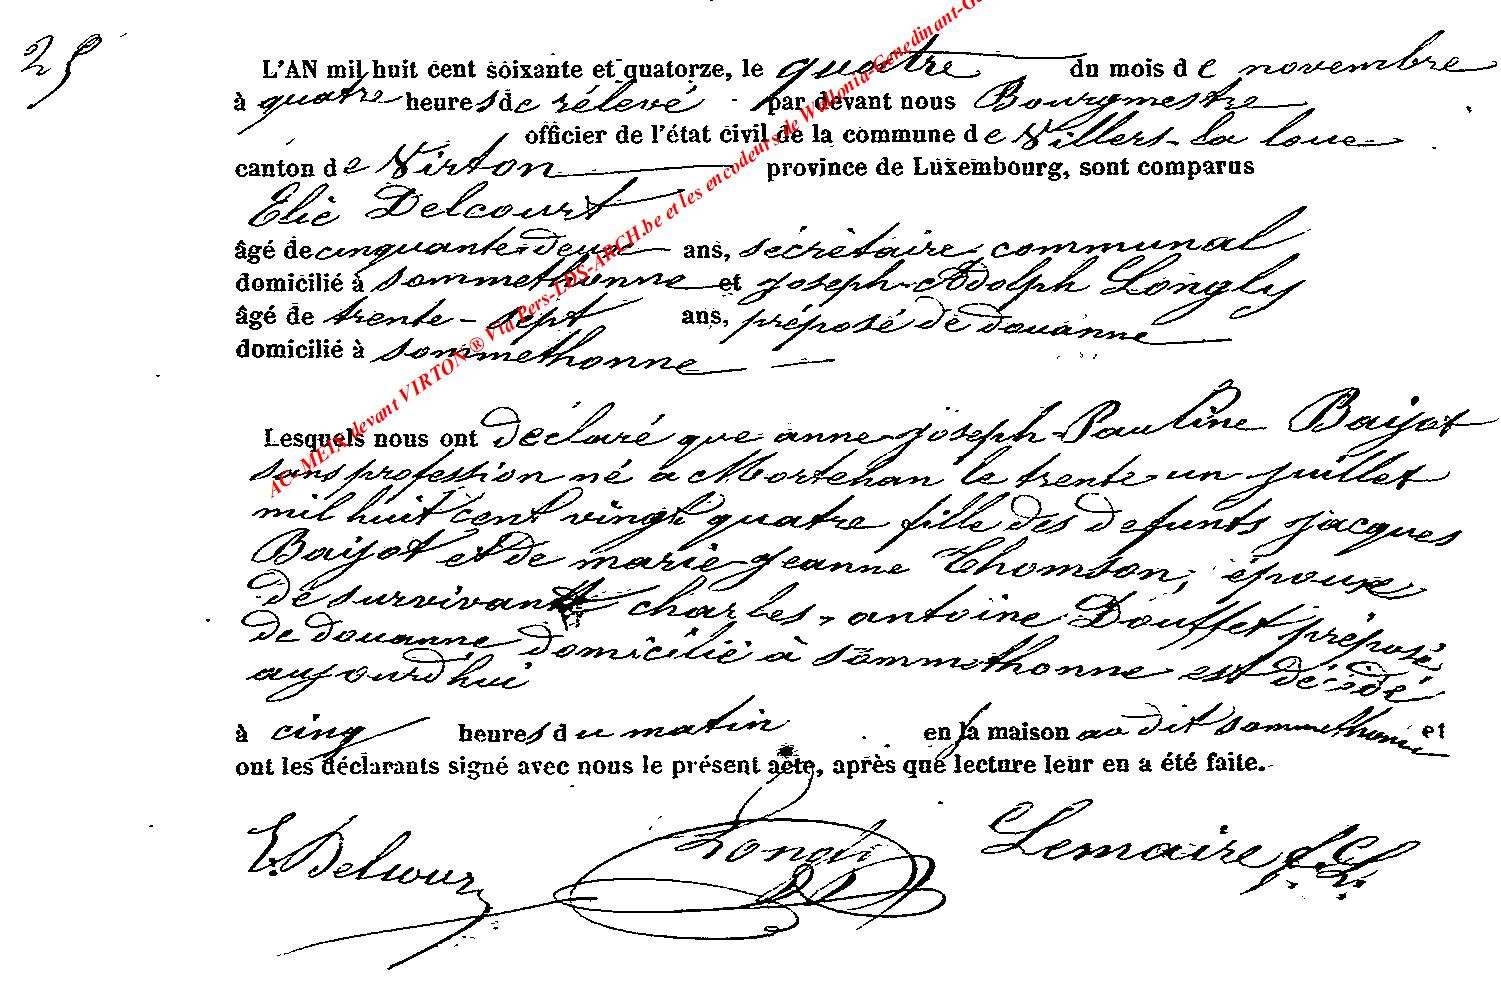 25
L'AN mil huit cent soixante et quatorze, le quatre du mois de novembre
à quatre heures de rélevé par devant nous Bourgmestre
officier de l'état civil de la commune de Villers-la loue
canton de Virton province de Luxembourg, sont comparus
Elie Delcourt
âgé de cinquante-deux ans, sécrètaire communal
domicilié à sommethonne et joseph-Adolph Longly
âgé de trente-sept ans, préposé de douanne
domicilié à sommethonne
Lesquels nous ont déclaré que anne-joseph-Pauline Baijot
sans profession né a Mortehan le trente un juillet
mil huit cent vingt quatre fille des defunts jacques
Baijot et de marie jeanne Thomson, époux
de survivant charles-antoine Douffet préposé
de douanne domicilié à sommethonne est décédé
aujourd'hui
à cinq heures du matin en la maison au dit sommethonne et
ont les déclarants signé avec nous le présent acte, après que lecture leur en a été faite.
E. Delcour Longli Lemaire
AC-MEIX devant VIRTON ® Via Pers-LDS-ARCH.be et les encodeurs de Wallonia-Genedinant-